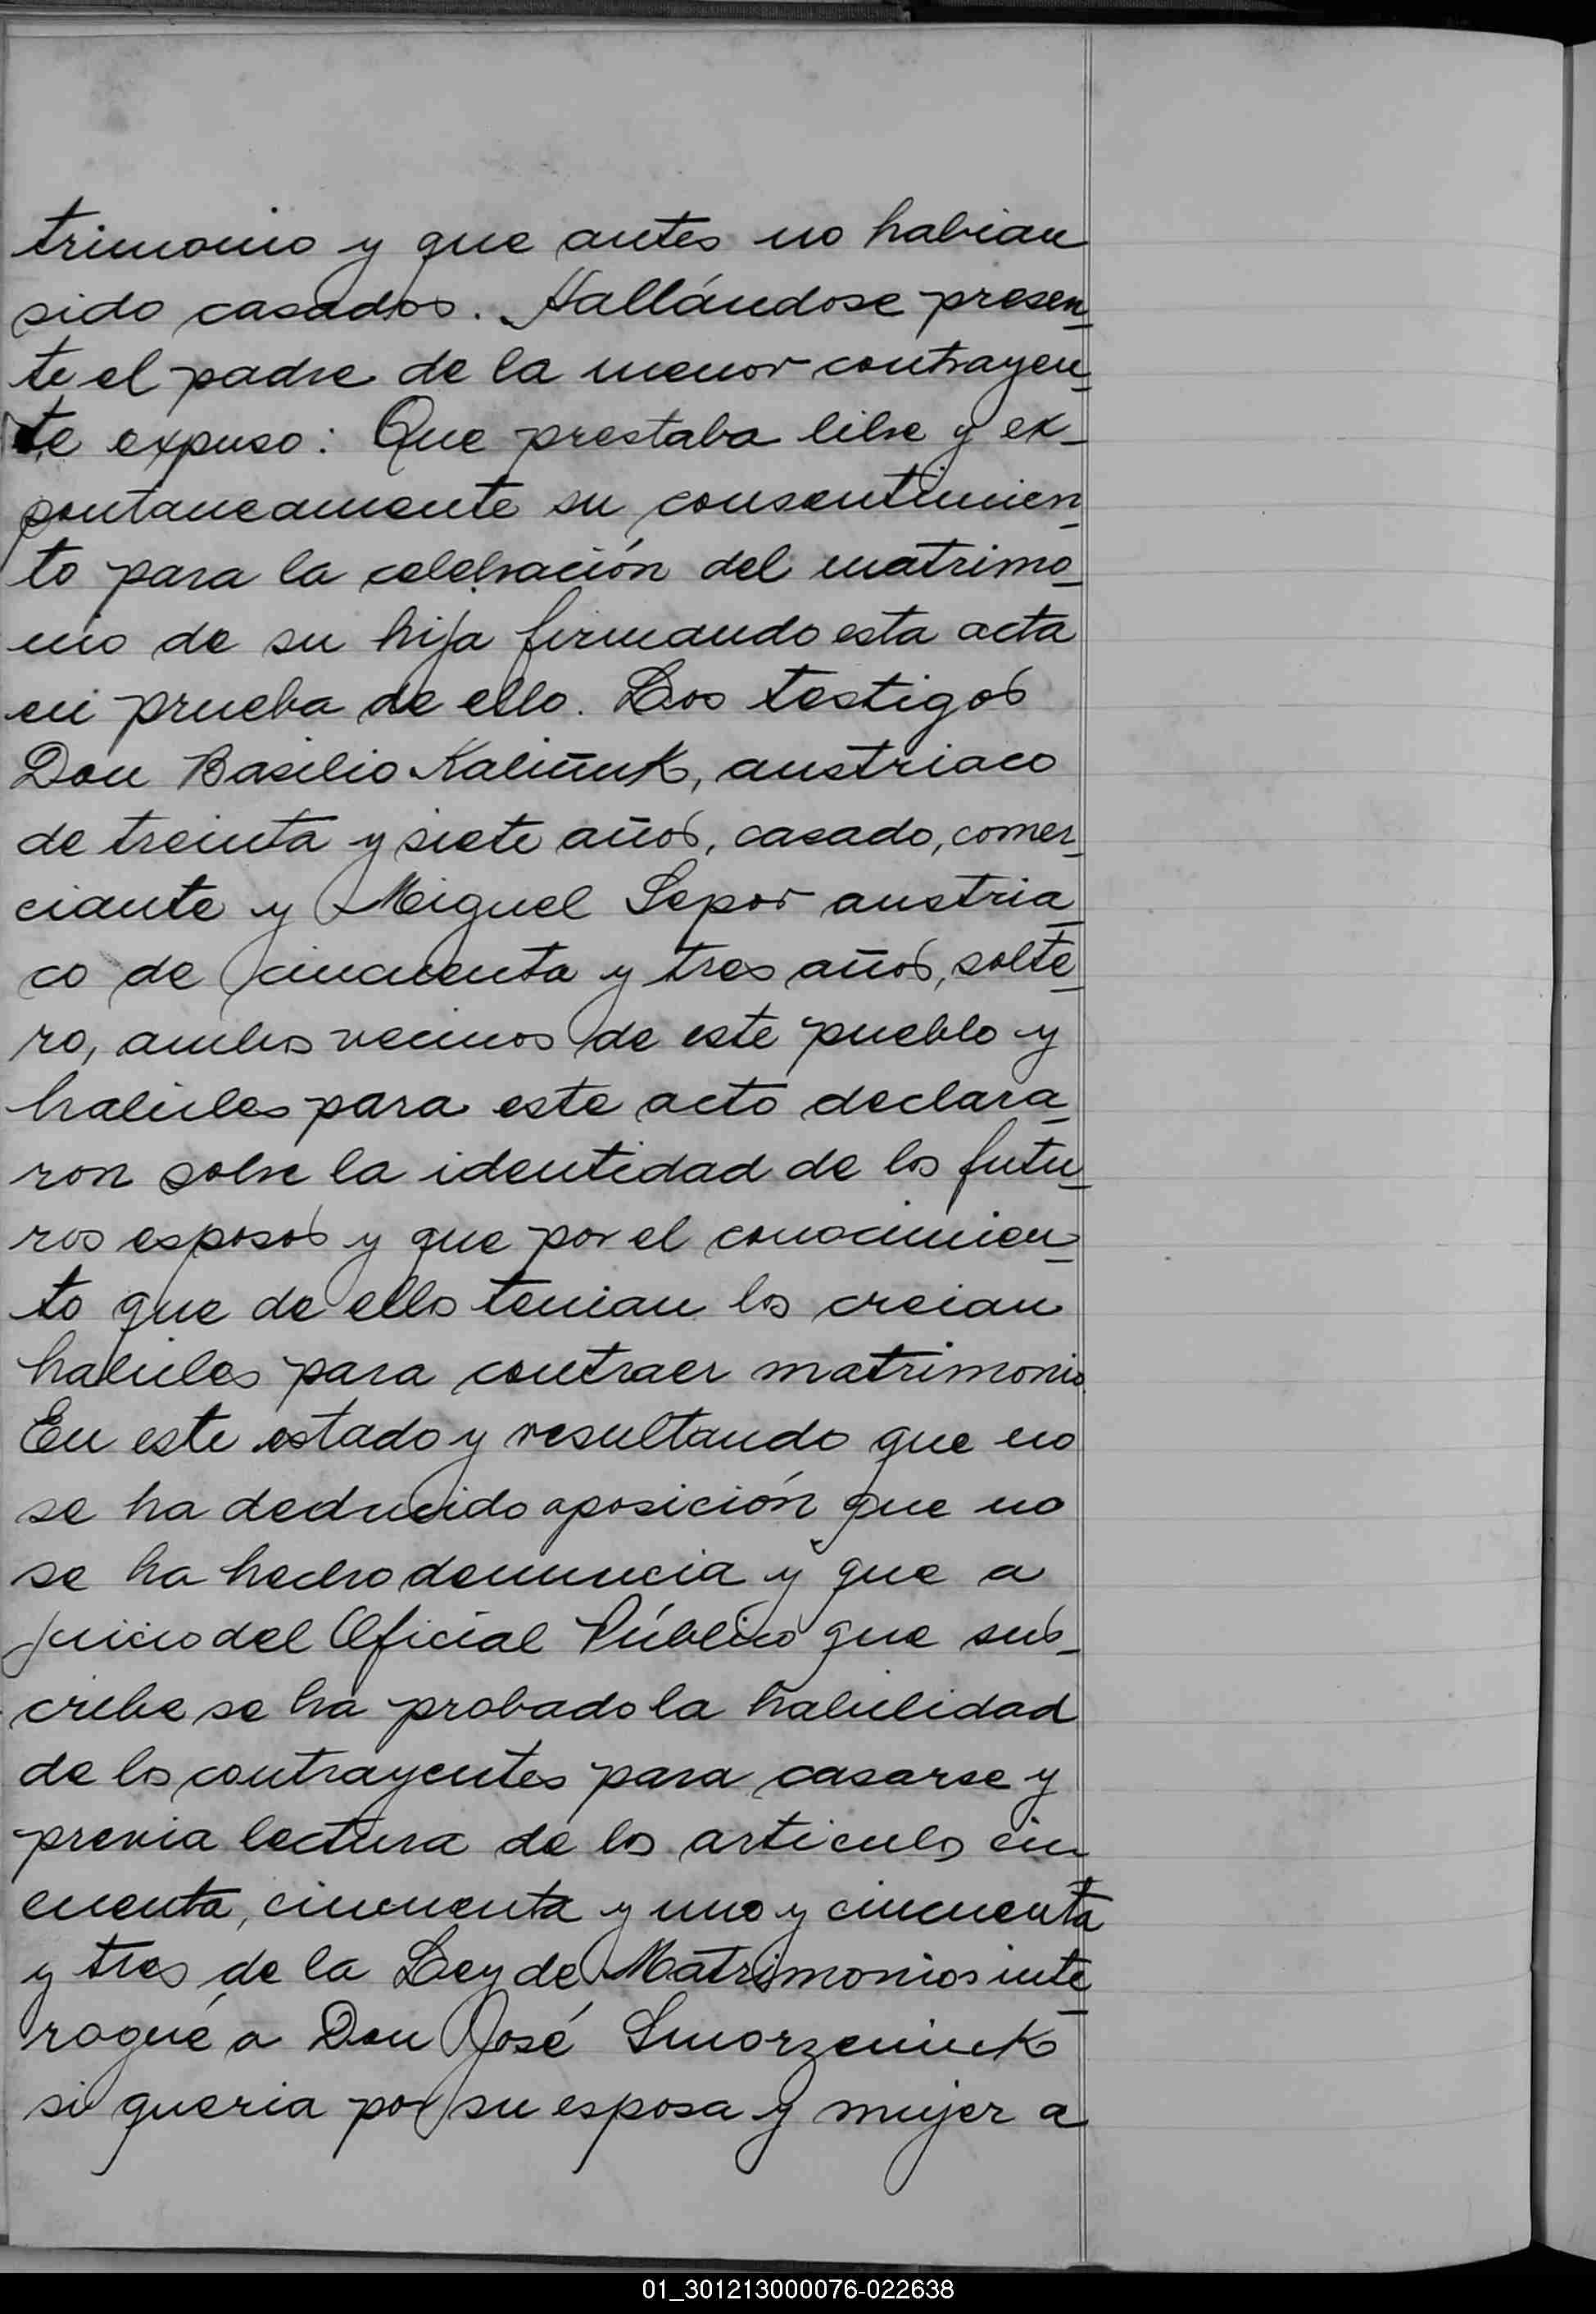 trimonio y que antes no habian
sido casados. Hallándose presen_
te el padre de la menor contrayen_
te expuso: Que prestaba libre y ex_
pontaneamente su consentimien_
to para la celebración del matrimo_
nio de su hija firmando esta acta
en prueba de ello. Los testigos
Don Basilio Kaliñuk, austriaco
de treinta y siete años, casado, comer_
ciante y Miguel Sepor austria_
co de cincuenta y tres años, solte_
ro, ambos vecinos de este pueblo y
habiles para este acto declara_
ron sobre la identidad de los futu_
ros esposos y que por el conocimien_
to que de ellos tenian los creian
habiles para contraer matrimonio.
En este estado y resultando que no
se ha deducido oposición que no
se ha hecho denuncia y que a
juicio del Oficial Público que sus_
cribe se ha probado la habilidad
de los contrayentes para casarse y
previa lectura de los articulos cin
cuenta, cincuenta y uno y cincuenta
y tres de la Ley de Matrimonios inte_
rogué a Don José Smorzeniuk
si queria por su esposa y mujer a
01_301213000076-022638